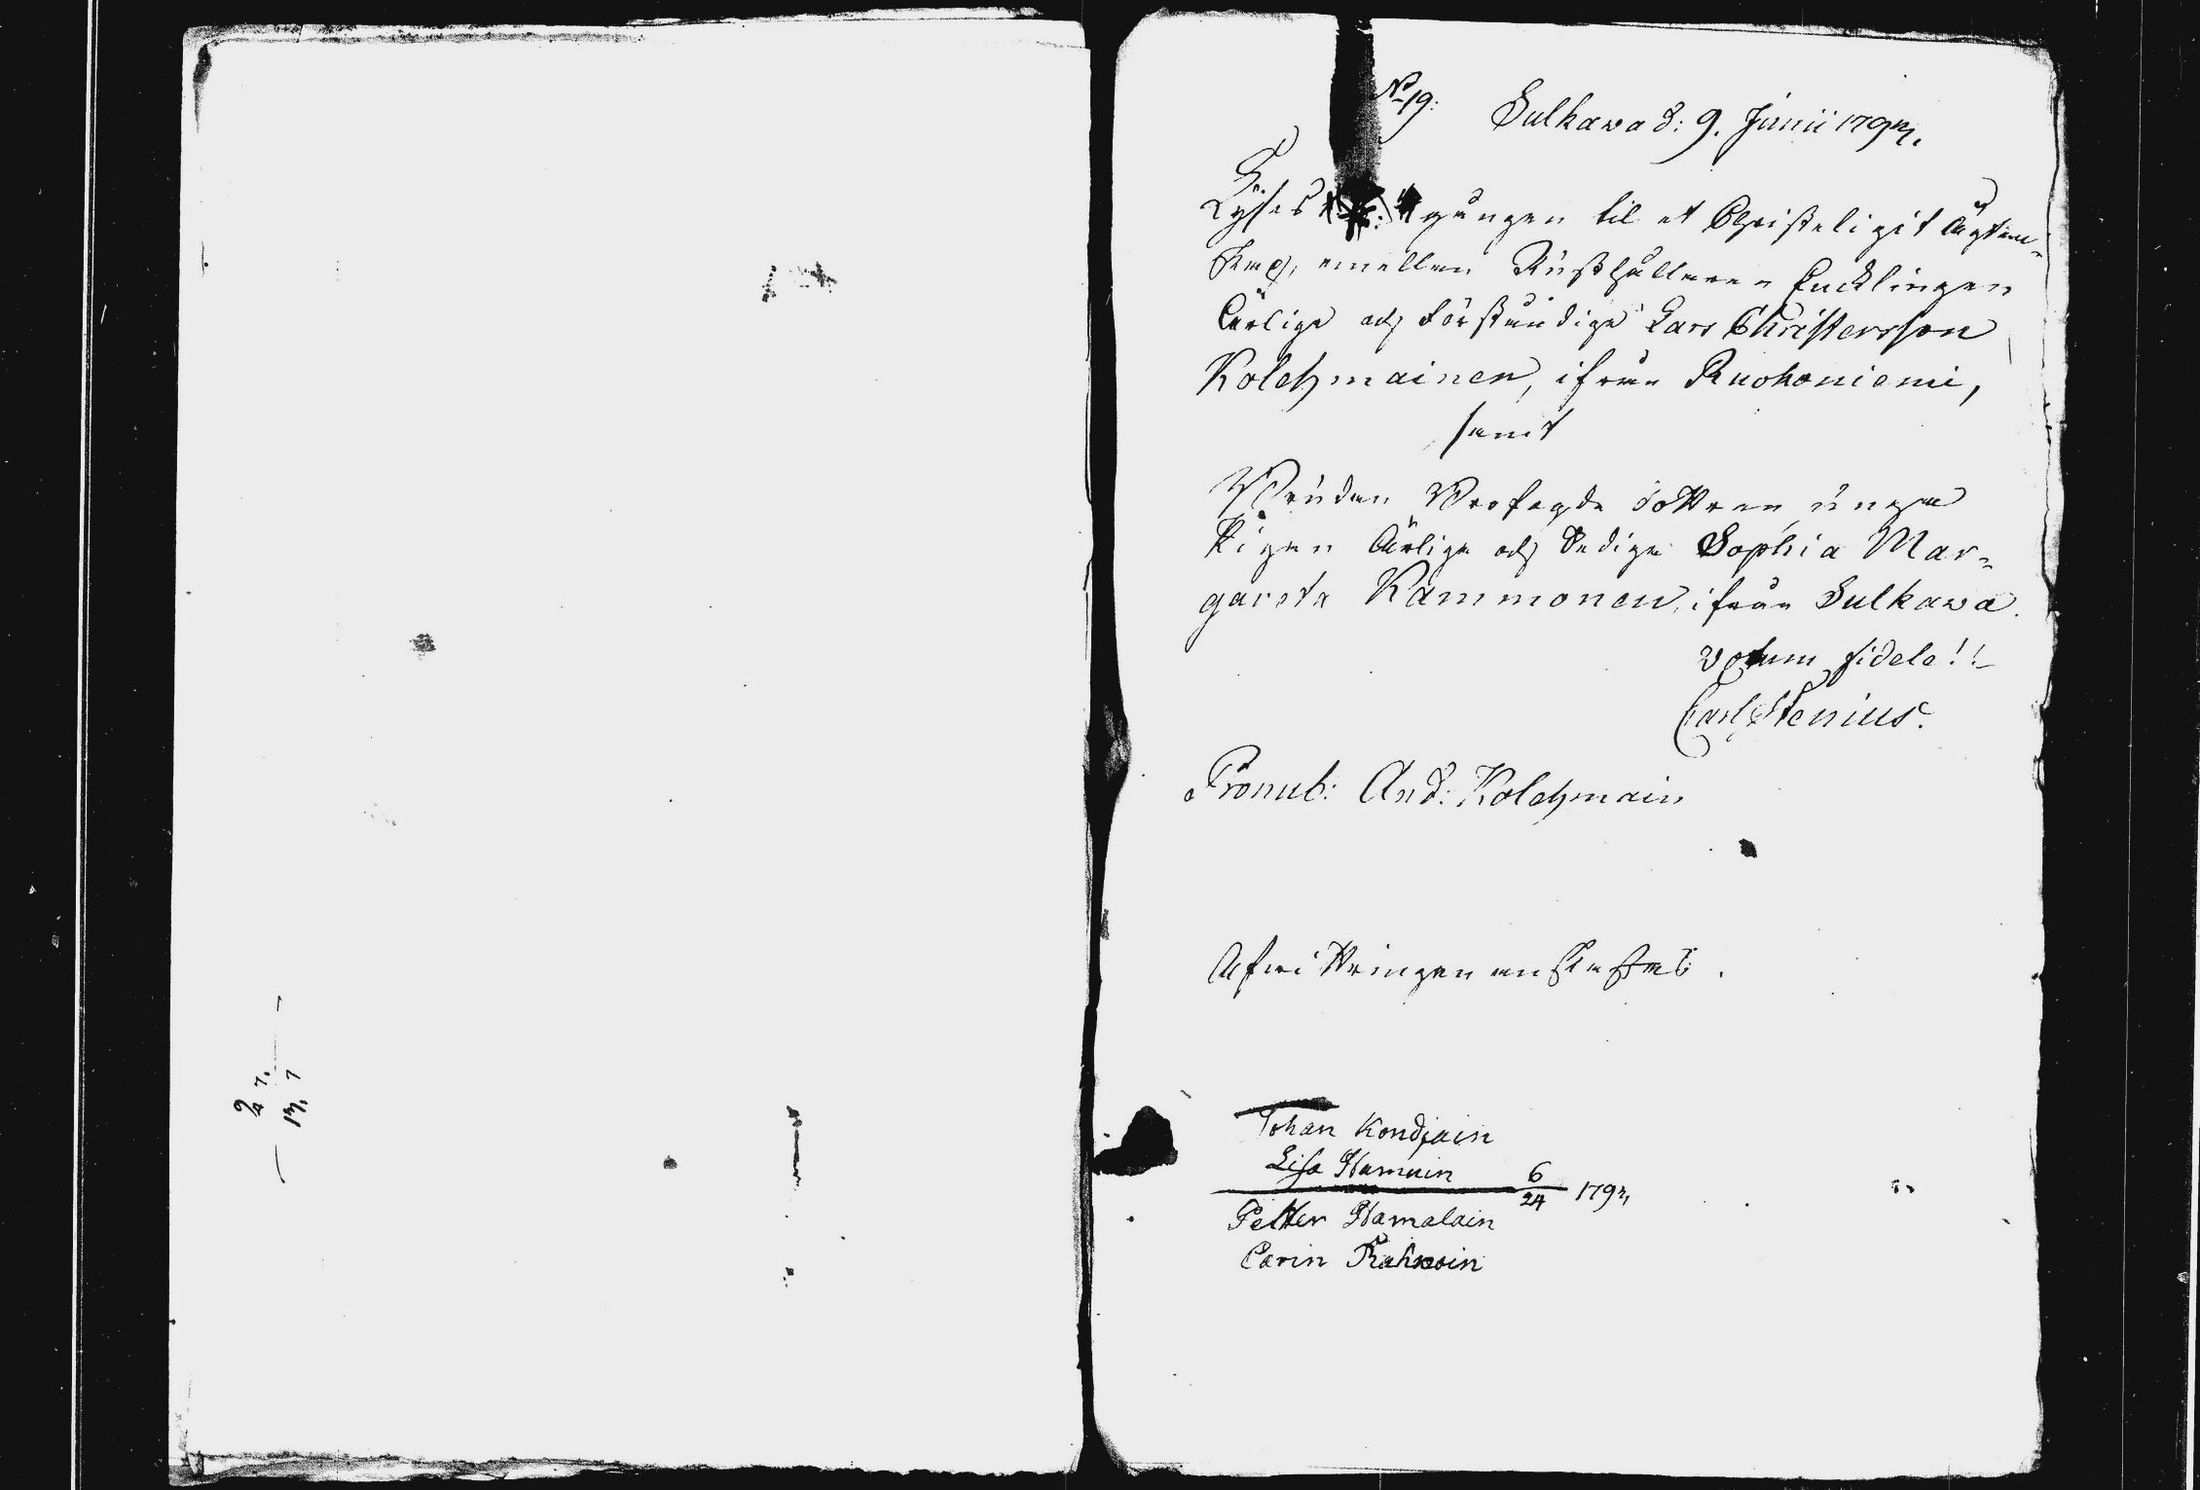 9/4 7.
13. 7
No 19.
Sulkawa d: 9. Junii 1793.
Lyses gången til et Christeligit Ägten-
skap, emellan Rusthållaren Encklingen
Ärlige och Förståndige Lars Christersson
Kolehmainen, ifrån Ruokoniemi,
samt
Bruden Bro fogde dottren unga
Pigan Ärliga och Sediga Sophia Mar-
gareta Kammonen, ifrån Sulkawa.
votum fidele!!
Carl Stenius.
Pronub: And: Kolehmain
Afwittringen
Johan Kondjain
Lisa Hamain
6/24 1793
Petter Hamalain
Carin